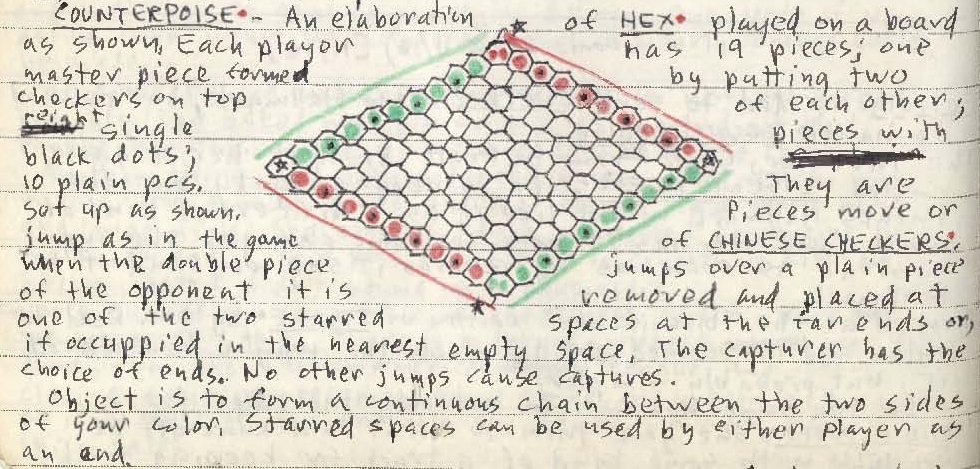 COUNTERPOISE•- An elaboration of HEX• played on a board
as shown. Each playor has 19 pieces; one
master piece formed by putting two
checkers on top of each other;
single pieces with
black dots;
10 plain pcs. They are
Set up as shown. Pieces move or
jump as in the game of CHINESE CHECKERS•.
When the double piece jumps over a plain piece
of the opponent it is removed and placed at
one of the two starred spaces at the far ends or,
if occuppied in the nearest empty space. The capturer has the
choice of ends. No other jumps cause captures.
Object is to form a continuous chain between the two sides
of your color. Starred spaces can be used by either player as
an end.